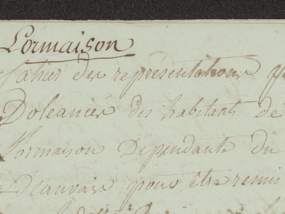 Lormaison
Cahier des représentations
Doleances des habitants de
Lormaison Dependante du
Beauvais pour être remis